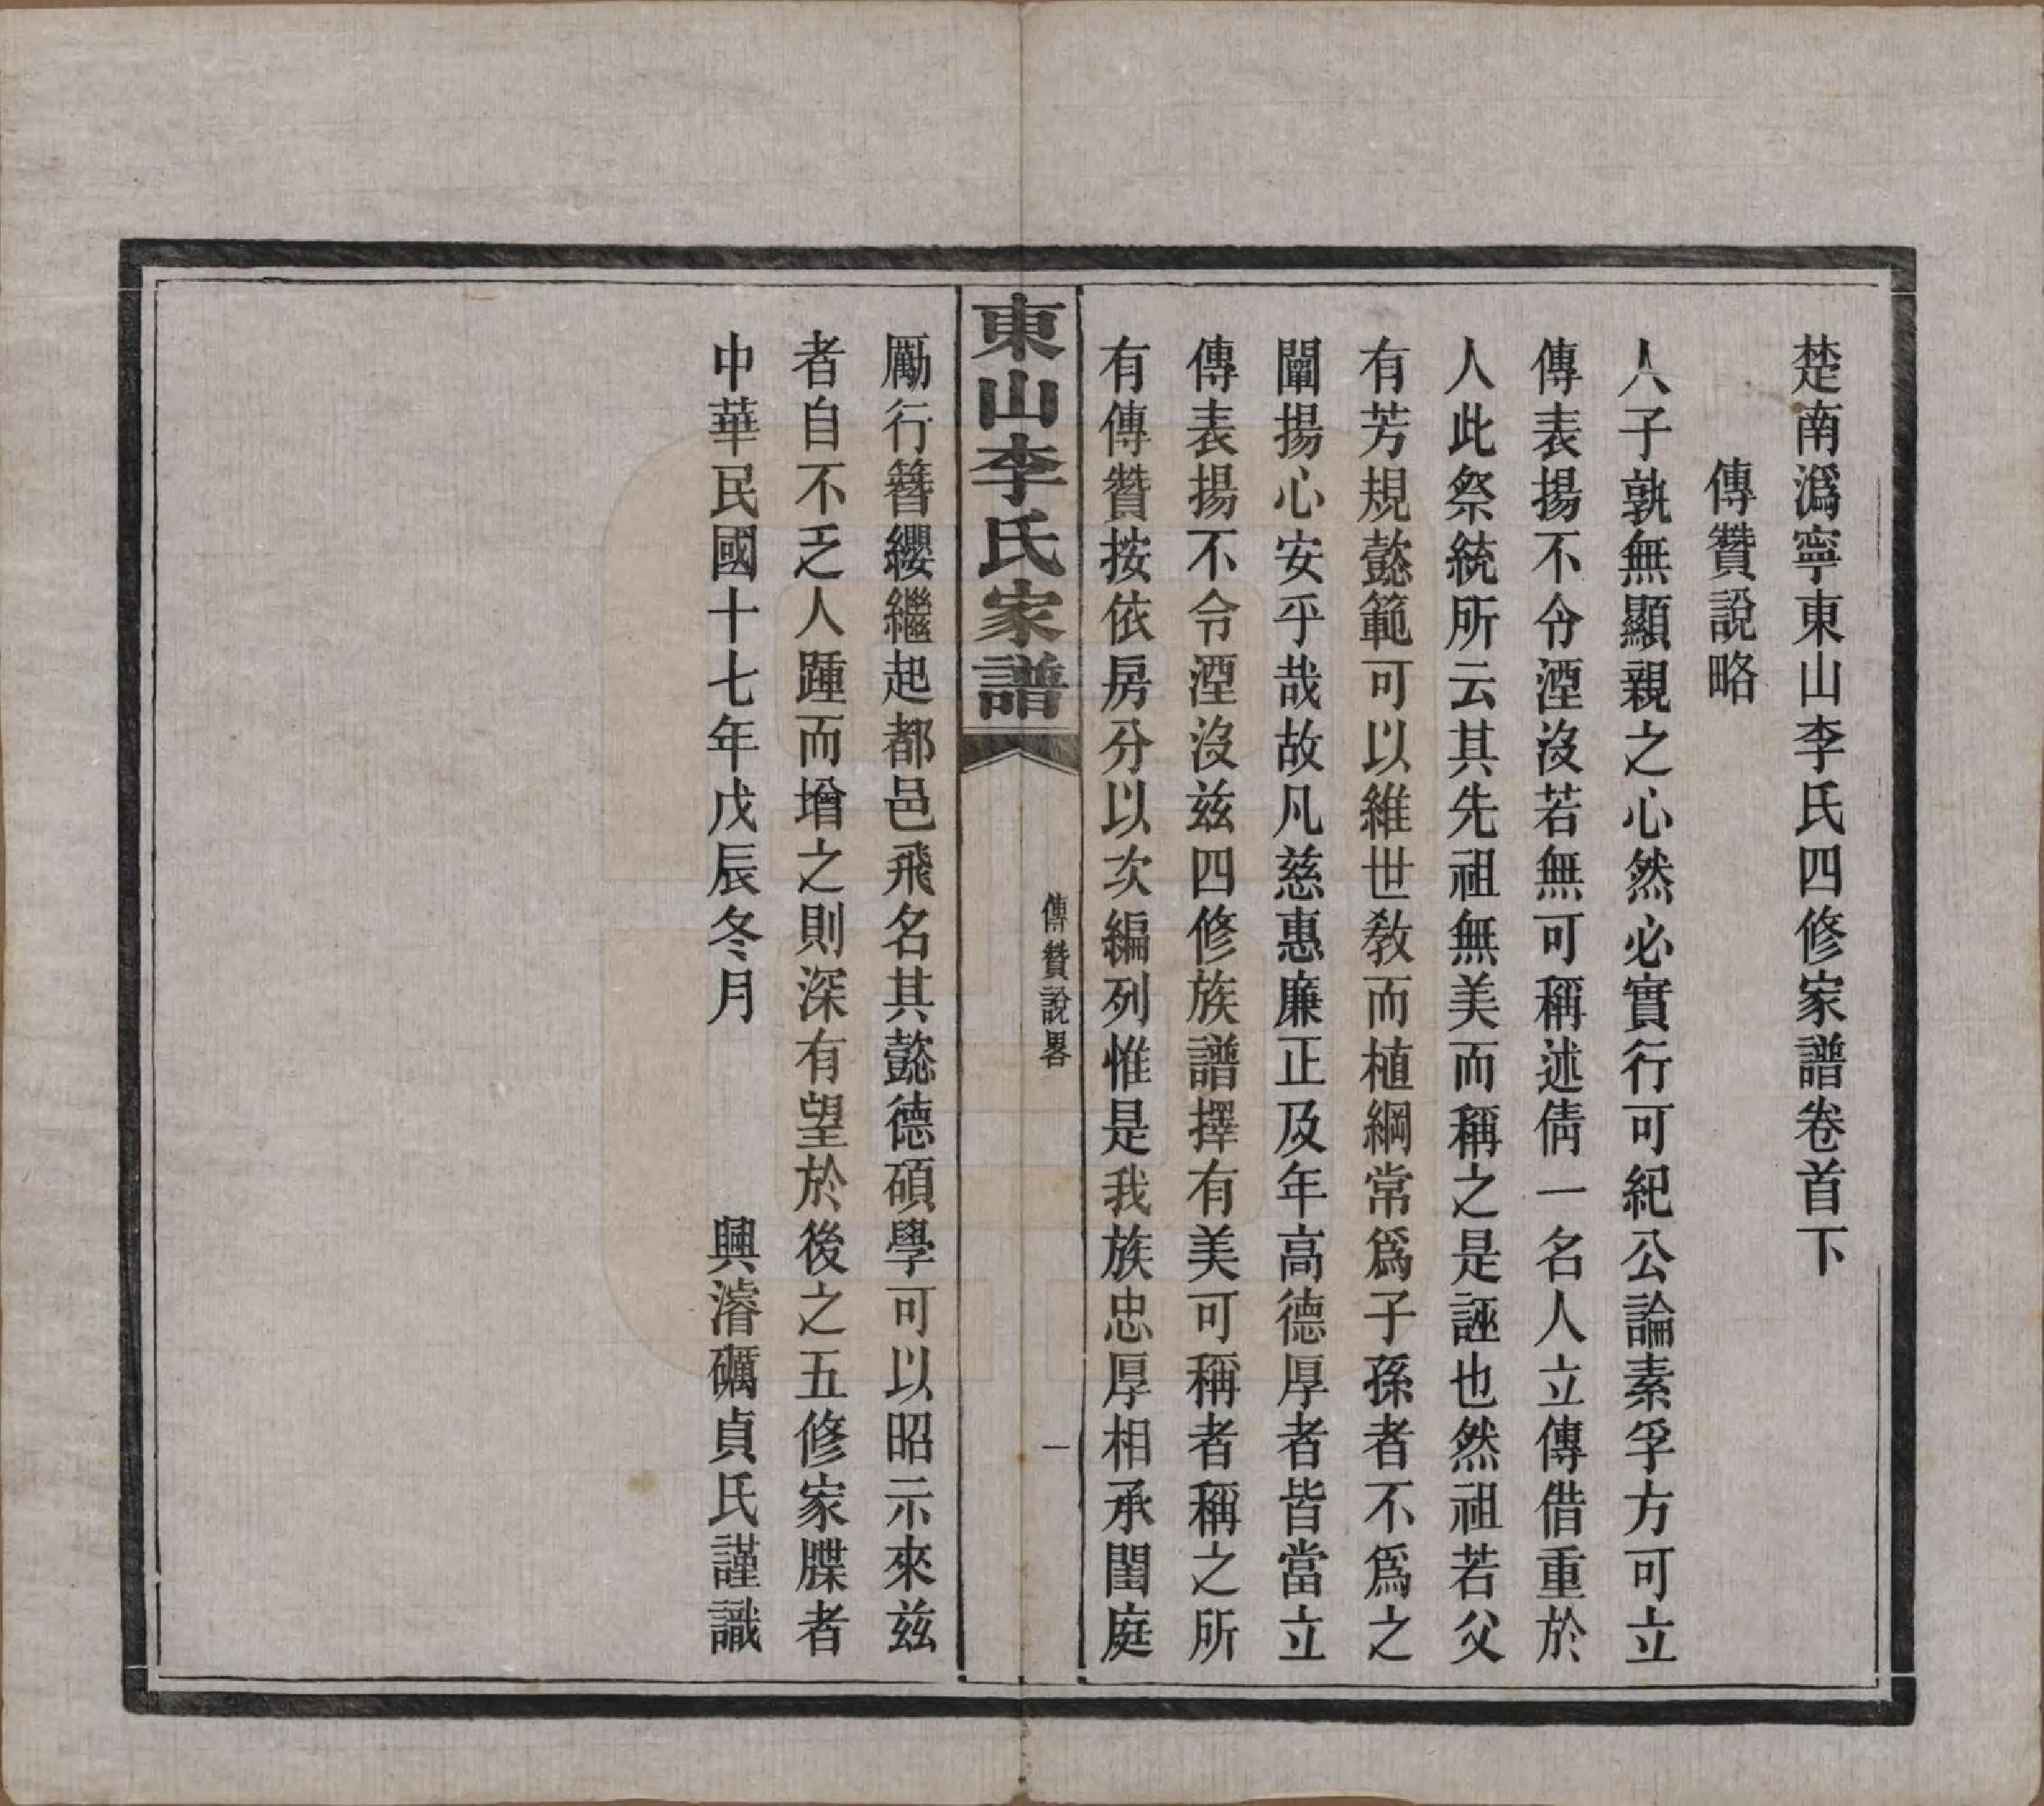 楚南潙寧東山李氏四修家譜卷首下
傳贊說略
人子孰無顯親之心然必實行可紀公論素孚方可立
傳表揚不令湮沒若無可稱述倩一名人立傳借重於
人此祭統所云其先祖無美而稱之是誣也然祖若父
有芳規懿範可以維世敎而植綱常爲子孫者不爲之
闡揚心安乎哉故凡慈惠廉正及年高德厚者皆當立
傳表揚不令湮沒兹四修族譜擇有美可稱者稱之所
有傳贊按依房分以次編列惟是我族忠厚相承閨庭
東山李氏家譜
傳贊說畧
一
勵行簪纓繼起都邑飛名其懿德碩學可以昭示來兹
者自不乏人踵而增之則深有望於後之五修家牒者
中華民國十七年戊辰冬月
興濬礪貞氏謹識